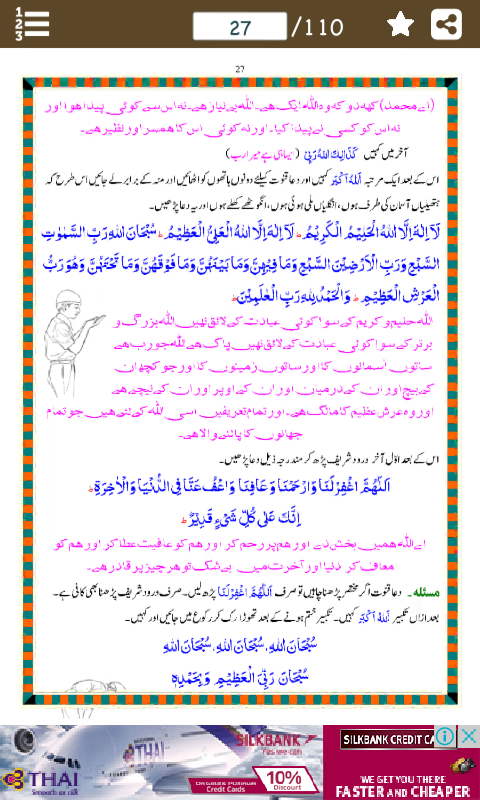 1
2
3
27
/110
27
(اے محمد) کہہ دو کہ وہ اللہ ایک ھے۔ اللہ بے نیاز ھے۔ نہ اس سے کوئی پیدا ھوا اور
نہ اس کو کسی نے پیدا کیا۔ اور نہ کوئی اس کا ھمسر اور نظیر ھے۔
آخر میں کہیں كَذَالِكَ اللهُ رَبِّیْ (ایسا ہی ہے میرا رب)
اس کے بعد ایک مرتبہ اَللهُ اَكْبَرْ کہیں اور دعا قنوت کیلئے دونوں ہاتھوں کو اٹھائیں اور منہ کے برابر لے جائیں اس طرح کہ
ہتھیلیاں آسمان کی طرف ہوں، انگلیاں ملی ہوئی ہوں، انگوٹھے کھلے ہوں اور یہ دعا پڑھیں۔
لَآ اِلٰهَ اِلَّا اللهُ الْحَلِيْمُ الْكَرِيْمُ ۔ لَآ اِلٰهَ اِلَّا اللهُ الْعَلِىُّ الْعَظِيْمُ ۔ سُبْحَانَ اللهِ رَبِّ السَّمٰوٰتِ
السَّبْعِ وَرَبِّ الْاَرَضِيْنَ السَّبْعِ وَمَا فِيْهِنَّ وَمَا بَيْنَهُنَّ وَمَا فَوْقَهُنَّ وَمَا تَحْتَهُنَّ وَهُوَ رَبُّ
الْعَرْشِ الْعَظِيْمِ ۔ وَالْحَمْدُ لِلهِ رَبِّ الْعٰلَمِيْنَ ۔
اللہ حلیم و کریم کے سوا کوئی عبادت کے لائق نھیں اللہ بزرگ و
برتر کے سوا کوئی عبادت کے لائق نھیں پاک ھے اللہ جو رب ھے
ساتوں آسمانوں کا اور ساتوں زمینوں کا اور جو کچھ ان
کے بیچ اور ان کے درمیان اور ان کے اوپر اور ان کے نیچے ھے
اور وہ عرش عظیم کا مالک ھے۔ اور تمام تعریفیں اسی اللہ کے لئے ھیں جو تمام
جھانوں کا پالنے والا ھے۔
اس کے بعد اوّل آخر درود شریف پڑھ کر مندرجہ ذیل دعا پڑھیں۔
اَللّٰهُمَّ اغْفِرْ لَنَا وَارْحَمْنَا وَعَافِنَا وَاعْفُ عَنَّا فِى الدُّنْيَا وَالْاٰخِرَةِ ۔
اِنَّكَ عَلٰى كُلِّ شَىْءٍ قَدِيْرٌ ۔
اے اللہ ھمیں بخش دے اور ھم پر رحم کر اور ھم کو عافیت عطا کر اور ھم کو
معاف کر دنیا اور آخرت میں بے شک تو ھر چیز پر قادر ھے۔
مسئلہ۔ دعا قنوت اگر مختصر پڑھنا چاہیں تو صرف اَللّٰهُمَّ اغْفِرْ لَنَا پڑھ لیں۔ صرف درود شریف پڑھنا بھی کافی ہے۔
بعد ازاں تکبیر اَللهُ اَكْبَرْ کہیں۔ تکبیر ختم ہونے کے بعد تھوڑا رک کر رکوع میں جائیں اور کہیں۔
سُبْحَانَ اللهِ، سُبْحَانَ اللهِ، سُبْحَانَ اللهِ
سُبْحَانَ رَبِّىَ الْعَظِيْمِ وَبِحَمْدِهٖ
THAI
SILKBANK
SILKBANK CREDIT CA
10%
Discount
on Gold & Platinum
Credit Cards
THAI
WE GET YOU THERE
FASTER AND CHEAPER